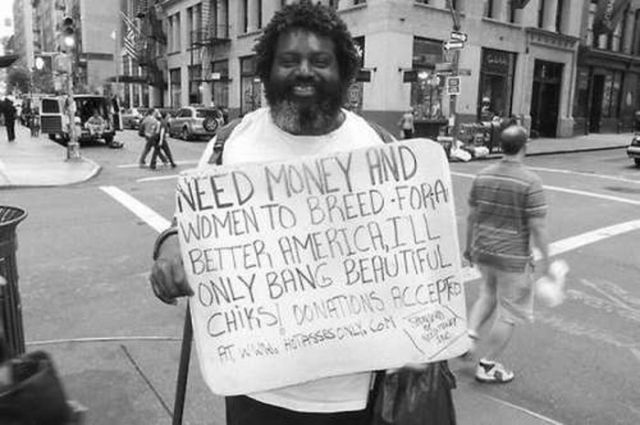 NEED MONEY AND
WOMEN TO BREED-FOR A
BETTER AMERICA, I'LL
ONLY BANG BEAUTIFUL
CHIKS! DONATIONS ACCEPTED
AT WWW. HOTASSESONLY. COM